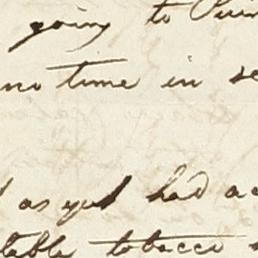 going to
no time in se
as yet had ac
table tobacco